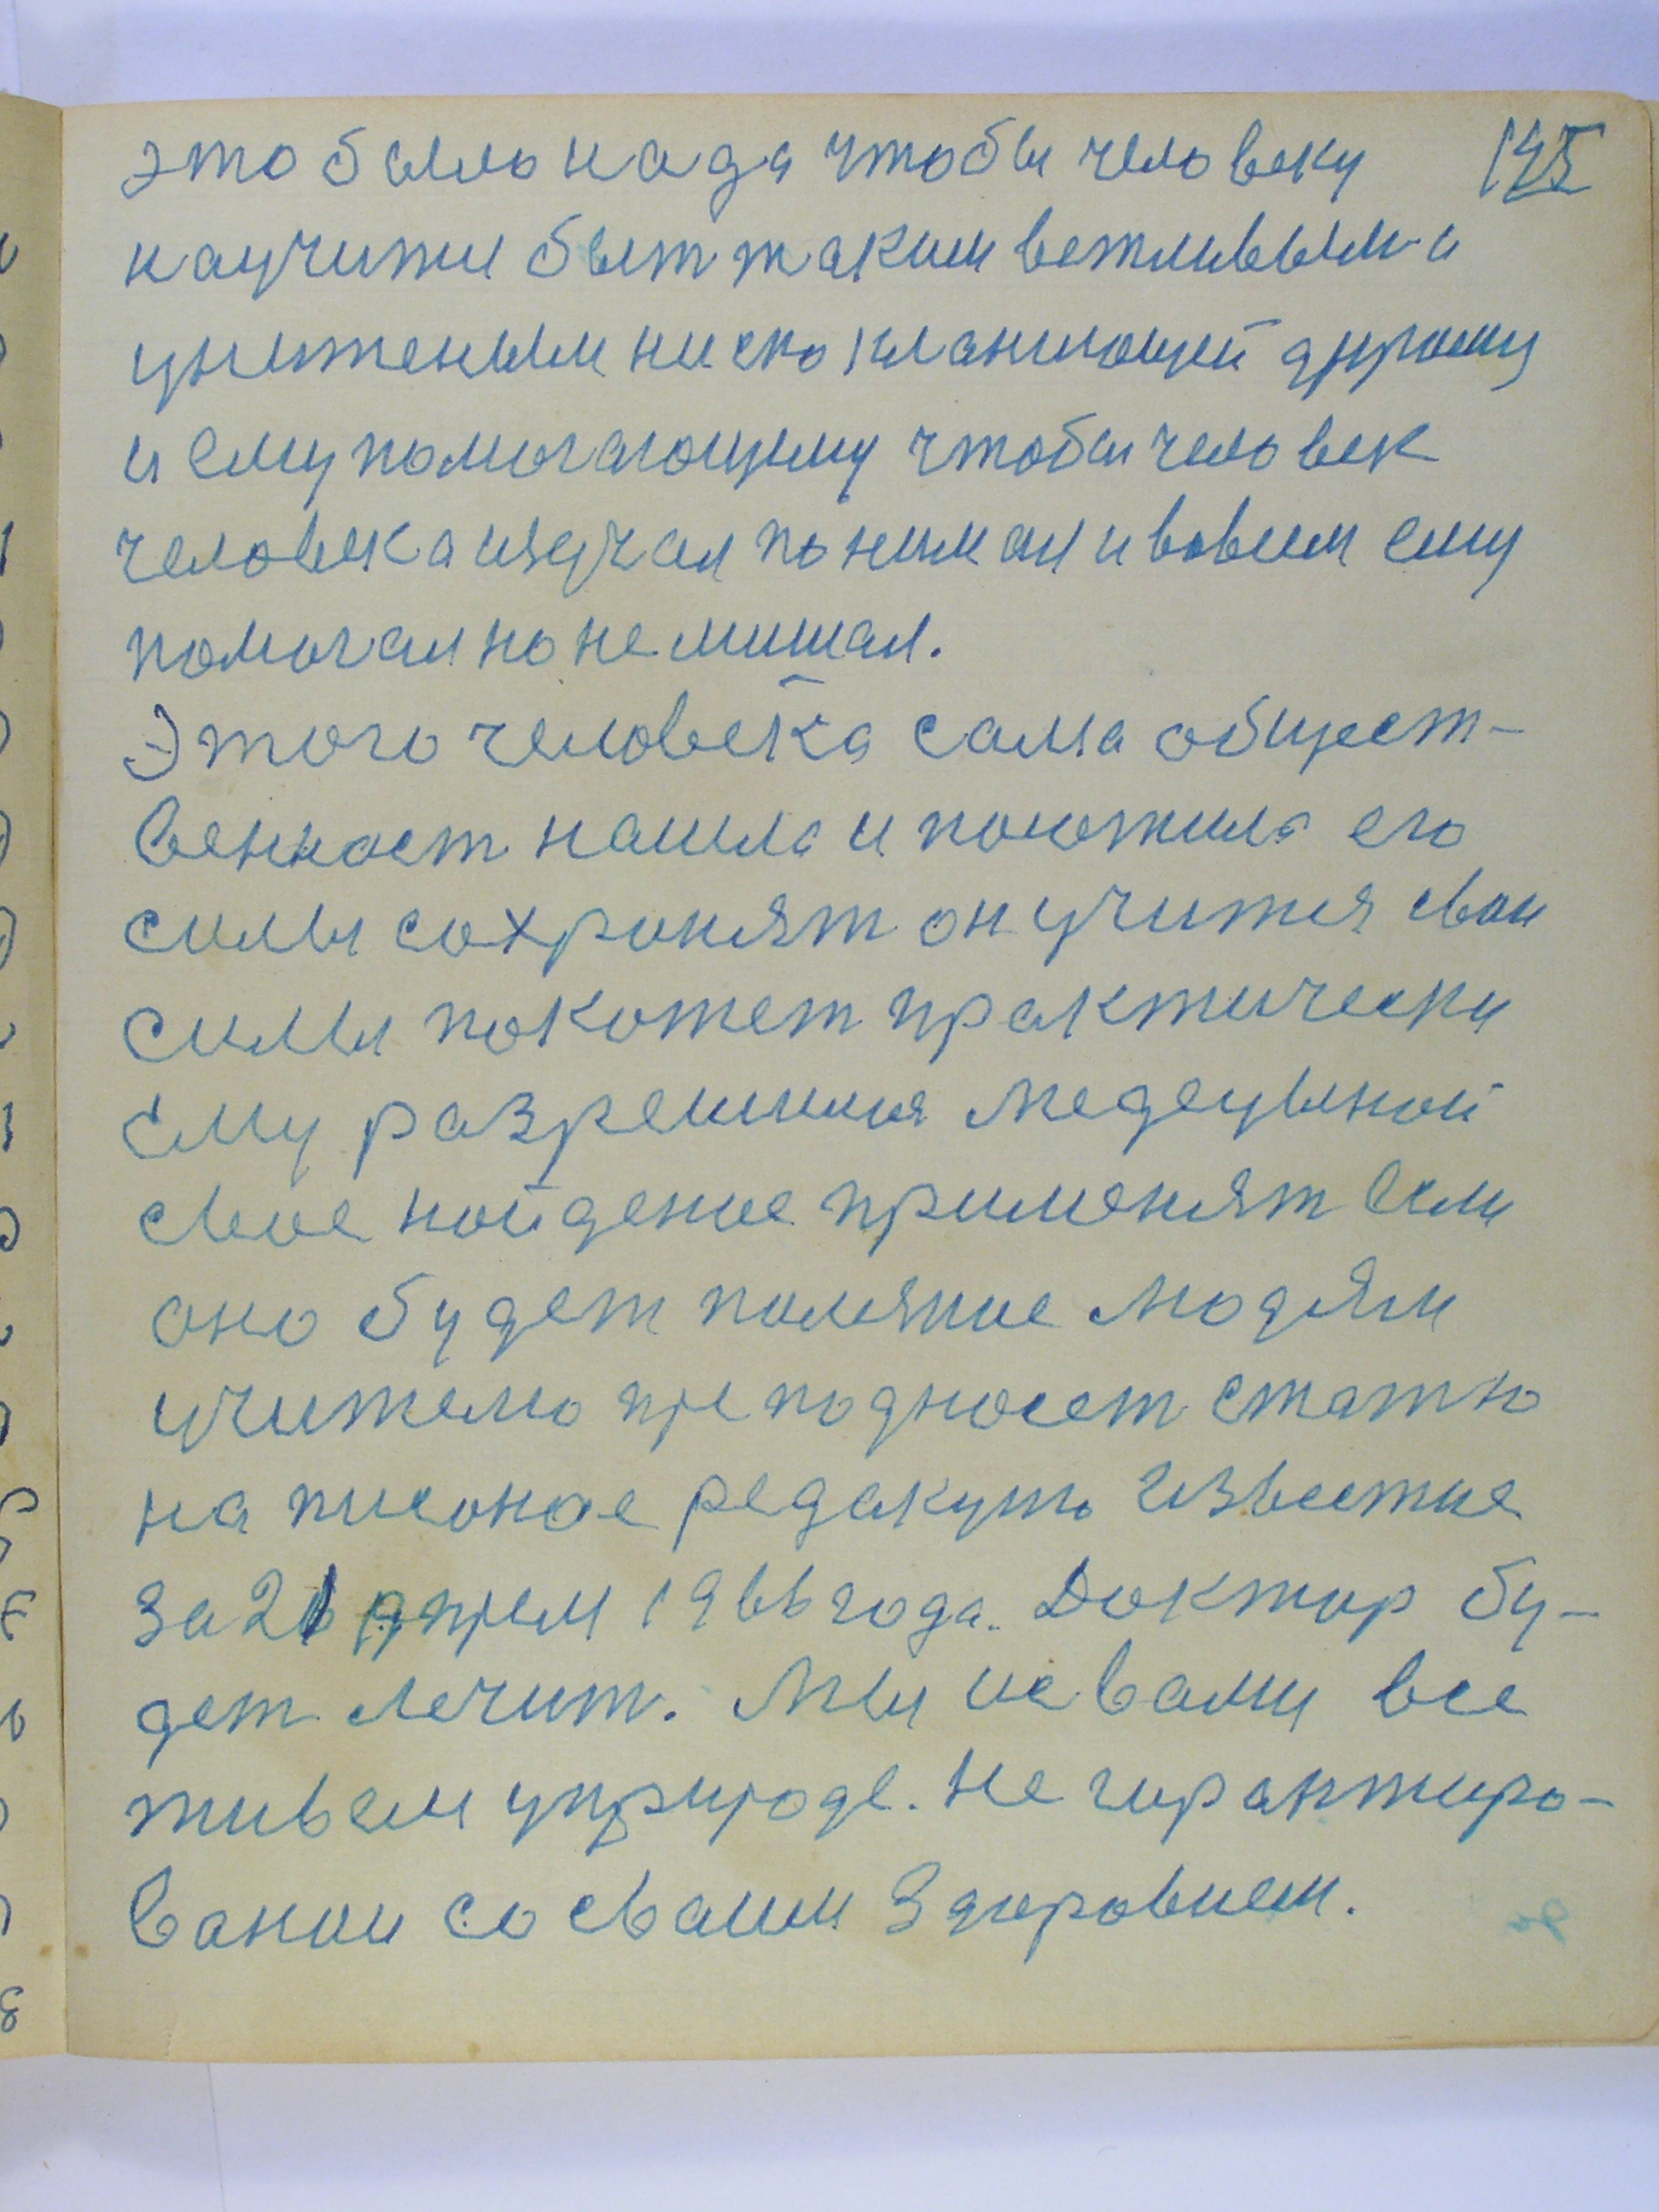 это было нада чтобы человеку 195
научитис быт таким вежливым и
униженым ниско кланиющей другому
и ему помогающему чтобы человек
человека изучал понимал и вовсем ему
помогал но не мишал.
Этого человека сама общест-
венност нашла и положила его
силы сохронят он учится свои
силы покожет практически
ему разрешится медецыной
свое нойдение применят если
оно будет полязное людям
учителю преподносет статю
на писоное редакцию Известие
за 21 Апрел 1966 года. Доктор бу-
дет лечит. Мы не вами все
живем у природе. Не гирантиро-
ванои со своим Здоровием.